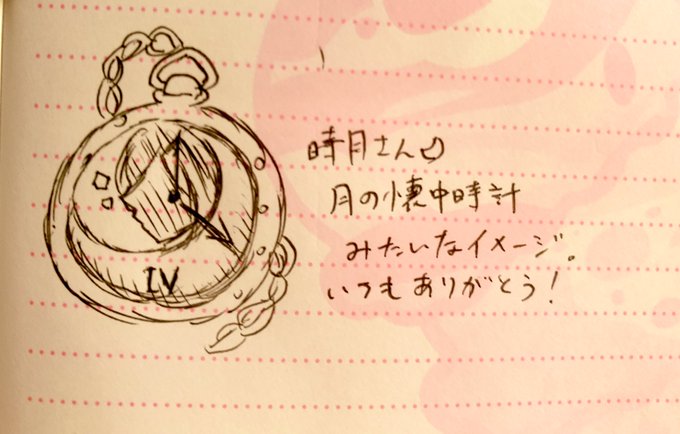 IV
時月さん
月の懐中時計
みたいなイメージ。
いつもありがとう!